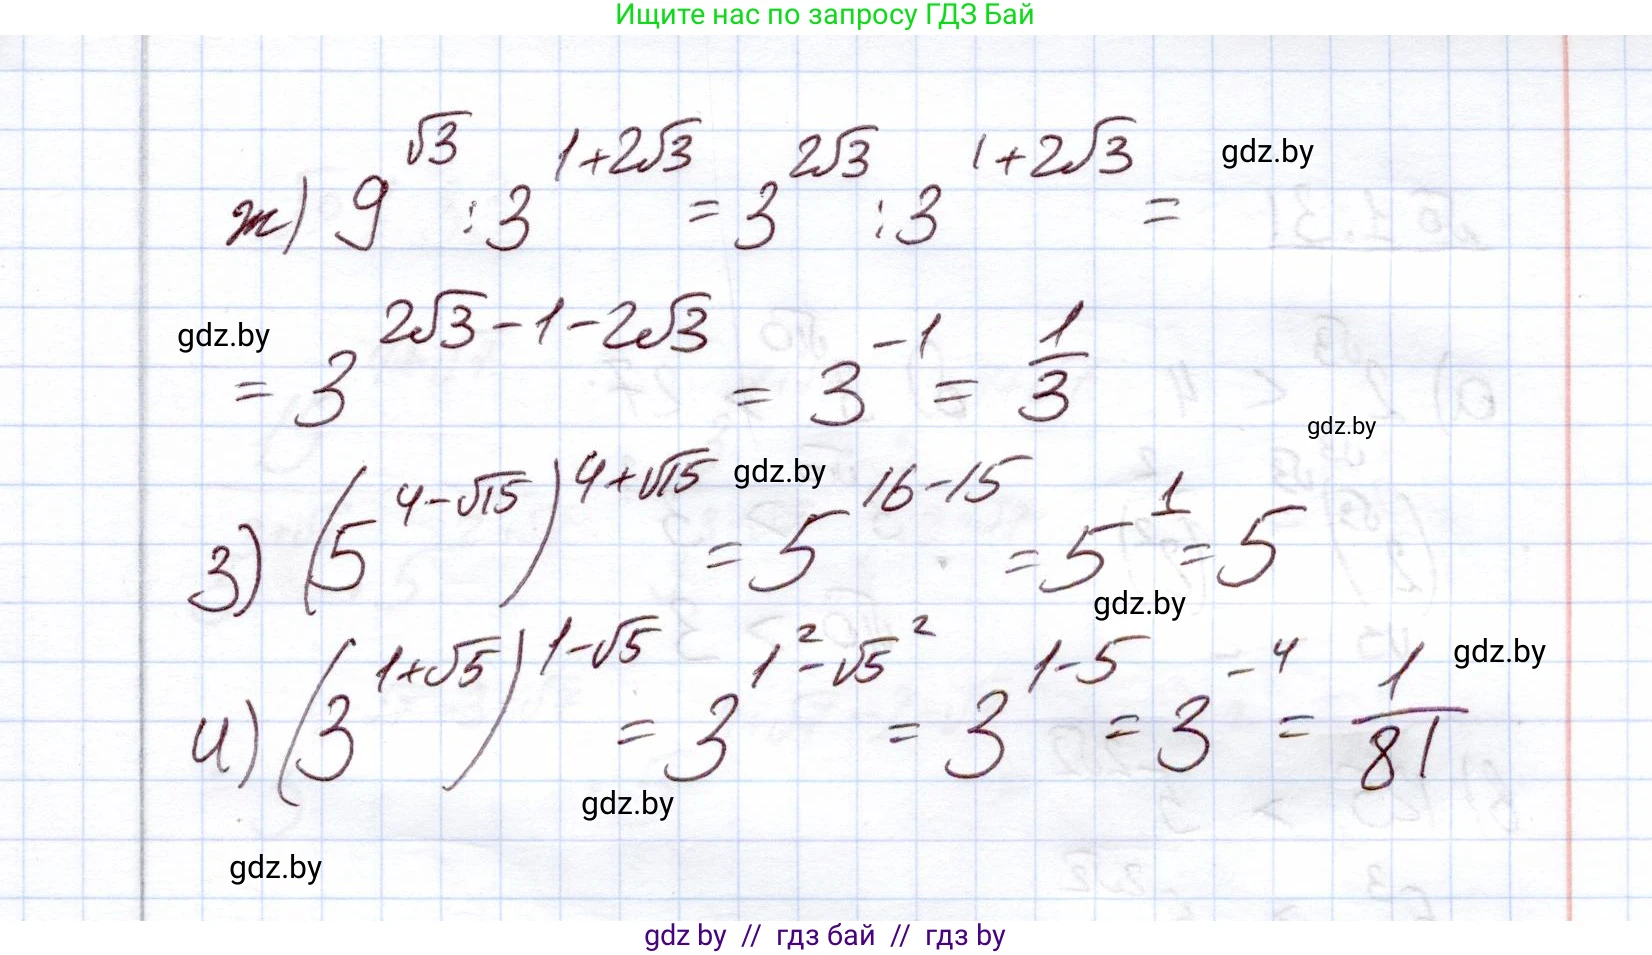 Ищите нас по запросу ГДЗ Бай
ж) 9^√3 : 3^(1+2√3) = 3^(2√3) : 3^(1+2√3) = gdz.by
gdz.by = 3^(2√3-1-2√3) = 3^(-1) = 1/3
gdz.by
з) (5^(4-√15))^(4+√15) = 5^(16-15) = 5^1 = 5 gdz.by
gdz.by
и) (3^(1+√5))^(1-√5) = 3^(1²-√5²) = 3^(1-5) = 3^(-4) = 1/81 gdz.by
gdz.by
gdz.by
gdz by // гдз бай // гдз by